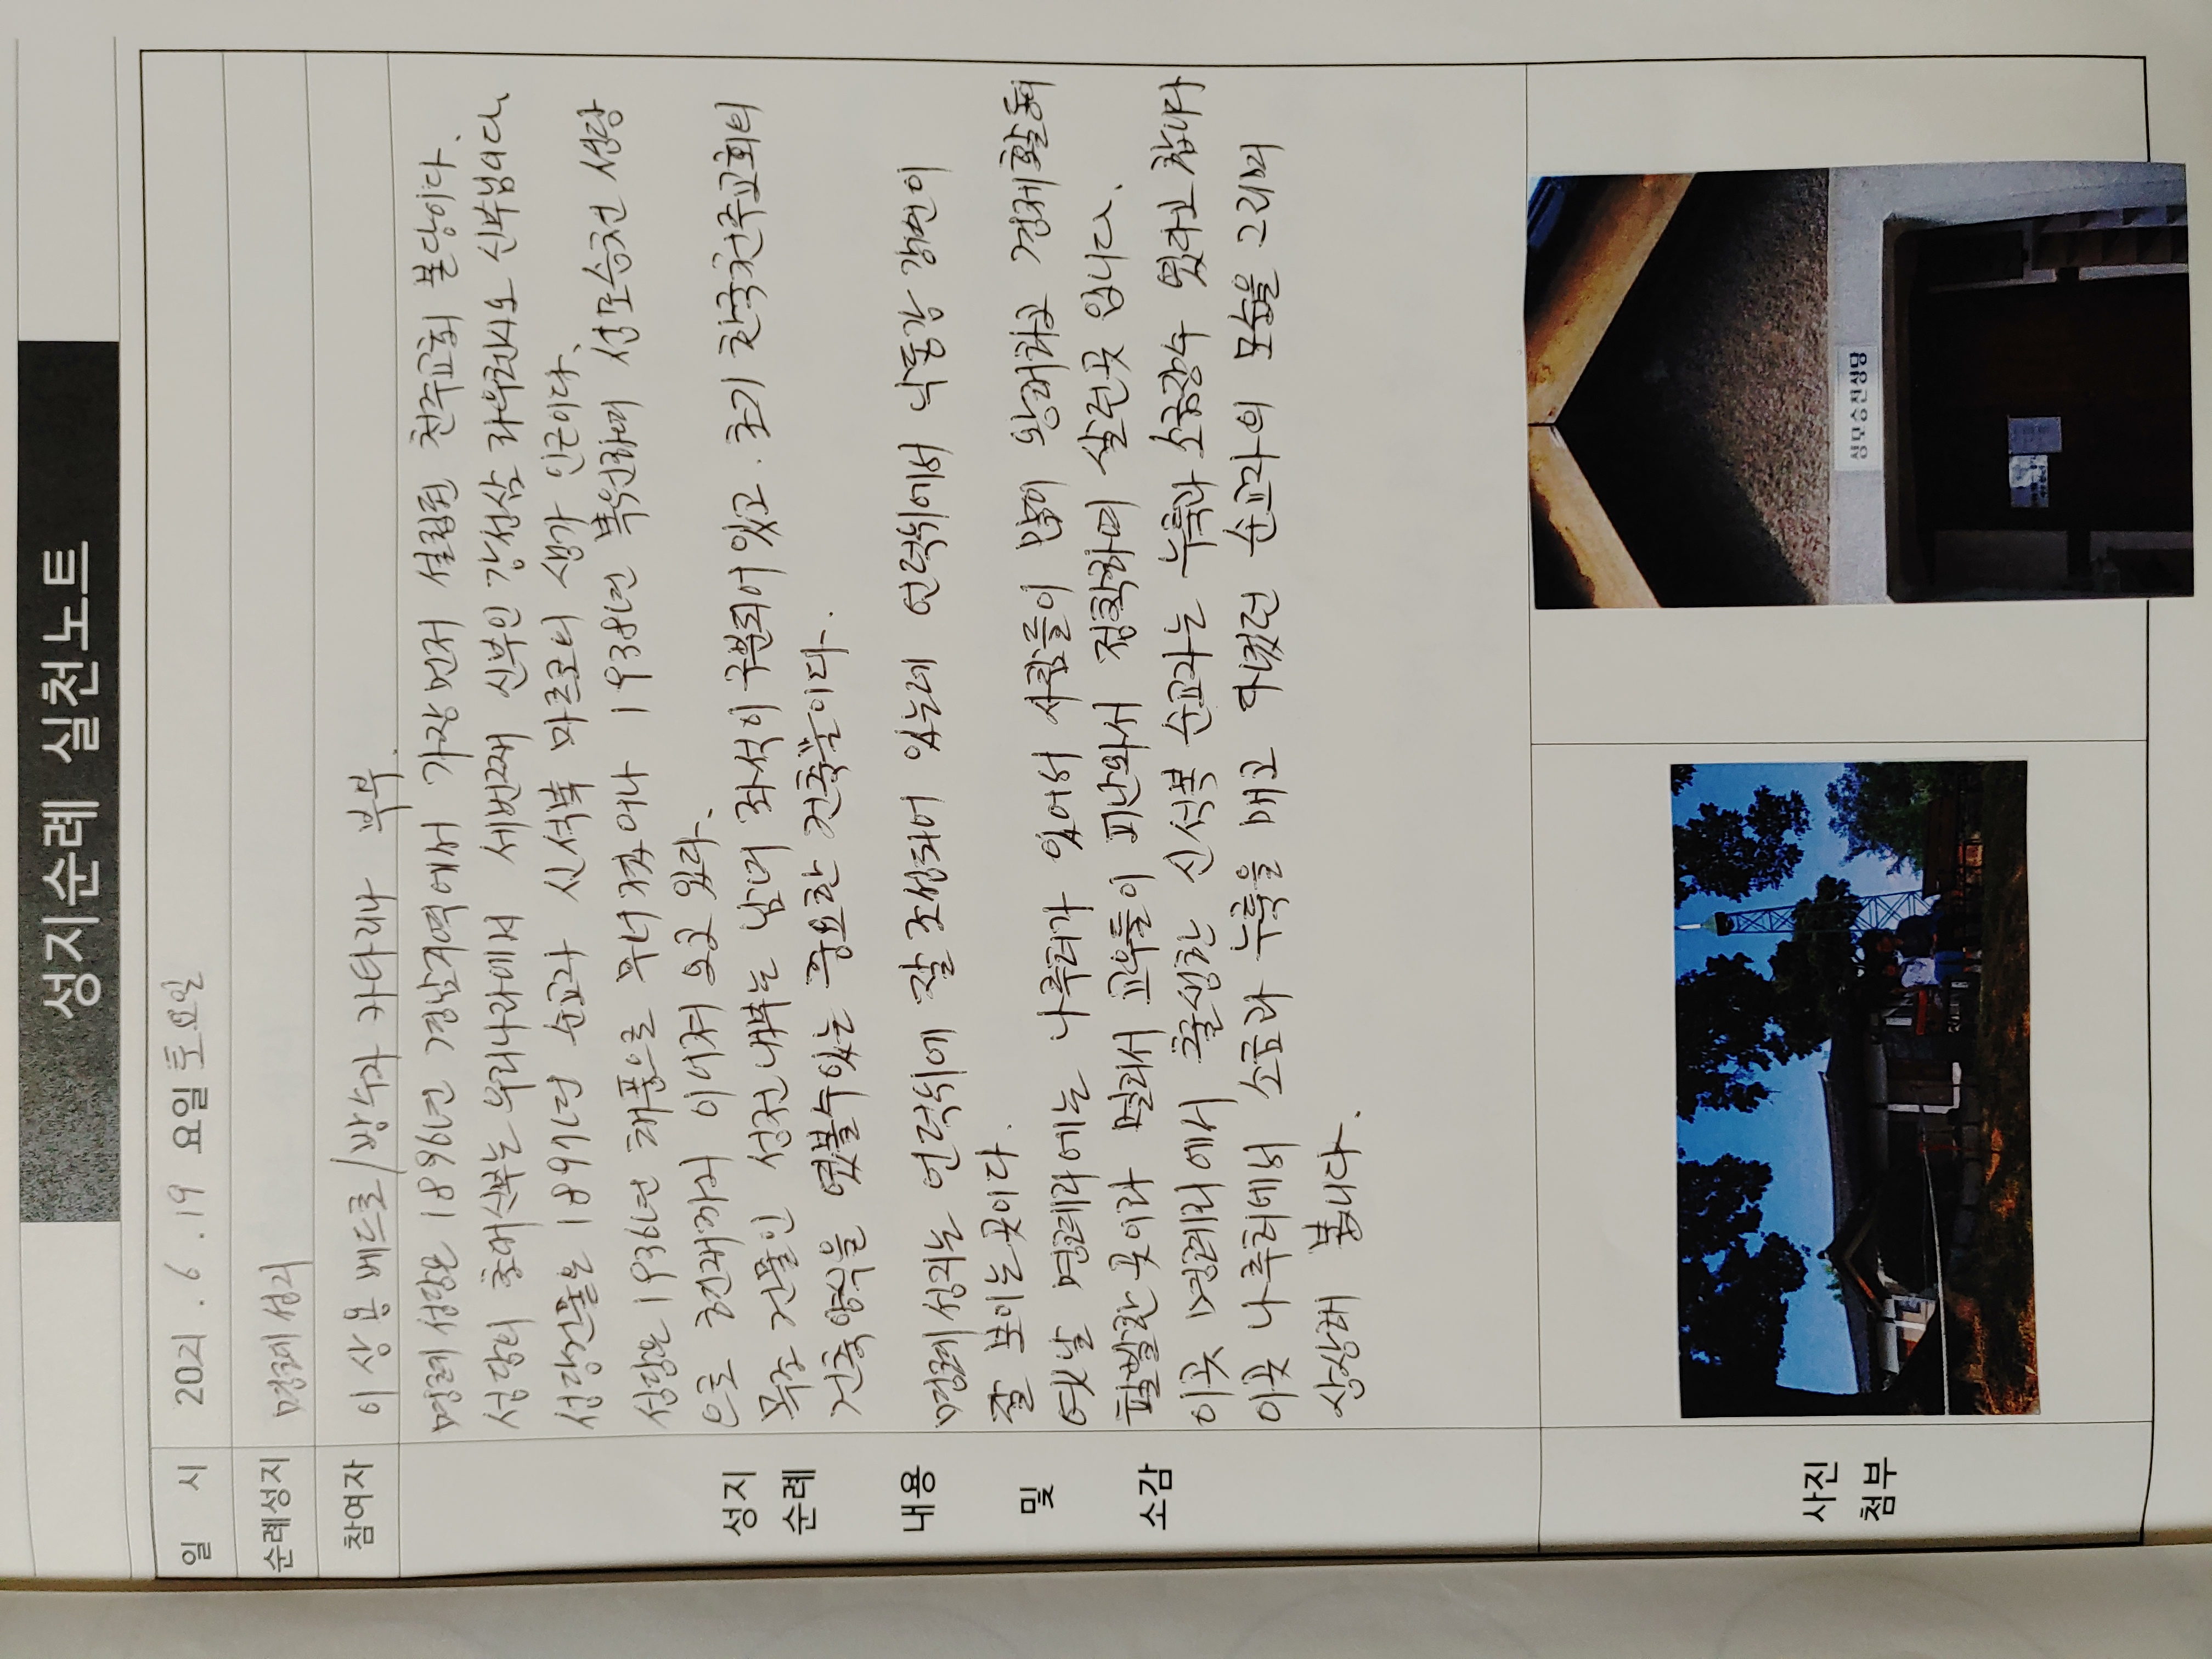 성지순례 실천노트
일 시 2021 . 6 . 19 요일 토요일
순례성지 명례성지
참여자 이상용 베드로/방수자 카타리나 부부.
성지 순례 내용 및 소감
명례성당은 1896년 경남지역에서 가장먼저 설립된 천주교회 본당이다.
성당의 초대신부는 우리나라에서 세번째 신부인 강성삼 라우렌시오 신부님이다.
성당건물은 1897년 순교자 신석복 마르코의 생가 인근이다.
성당은 1936년 태풍으로 무너졌어나 1938년 복원하며 성모승천 성당
으로 현재까지 이어져 오고 있다.
목조 건물인 성전내부는 남녀 좌석이 구분되어 있고. 초기 한국천주교회의
건축양식을 엿볼수있는 중요한 건축물이다.
명례성지는 언덕위에 잘 조성되어 있는데 언덕위에서 낙동강 강변이
잘 보이는곳이다.
옛날 명례리에는 나루터가 있어서 사람들이 많이 왕래하고 경제활동이
활발한 곳이라 멀리서 교우들이 피난와서 정착하며 살던곳 입니다.
이곳 명례리에서 출생한 신석복 순교자는 누룩과 소금장수 였다고 합니다
이곳 나루터에서 소금과 누룩을 메고 다녔던 순교자의 모습을 그리며
상상해 봅니다.
사진
첨부
성모승천성당